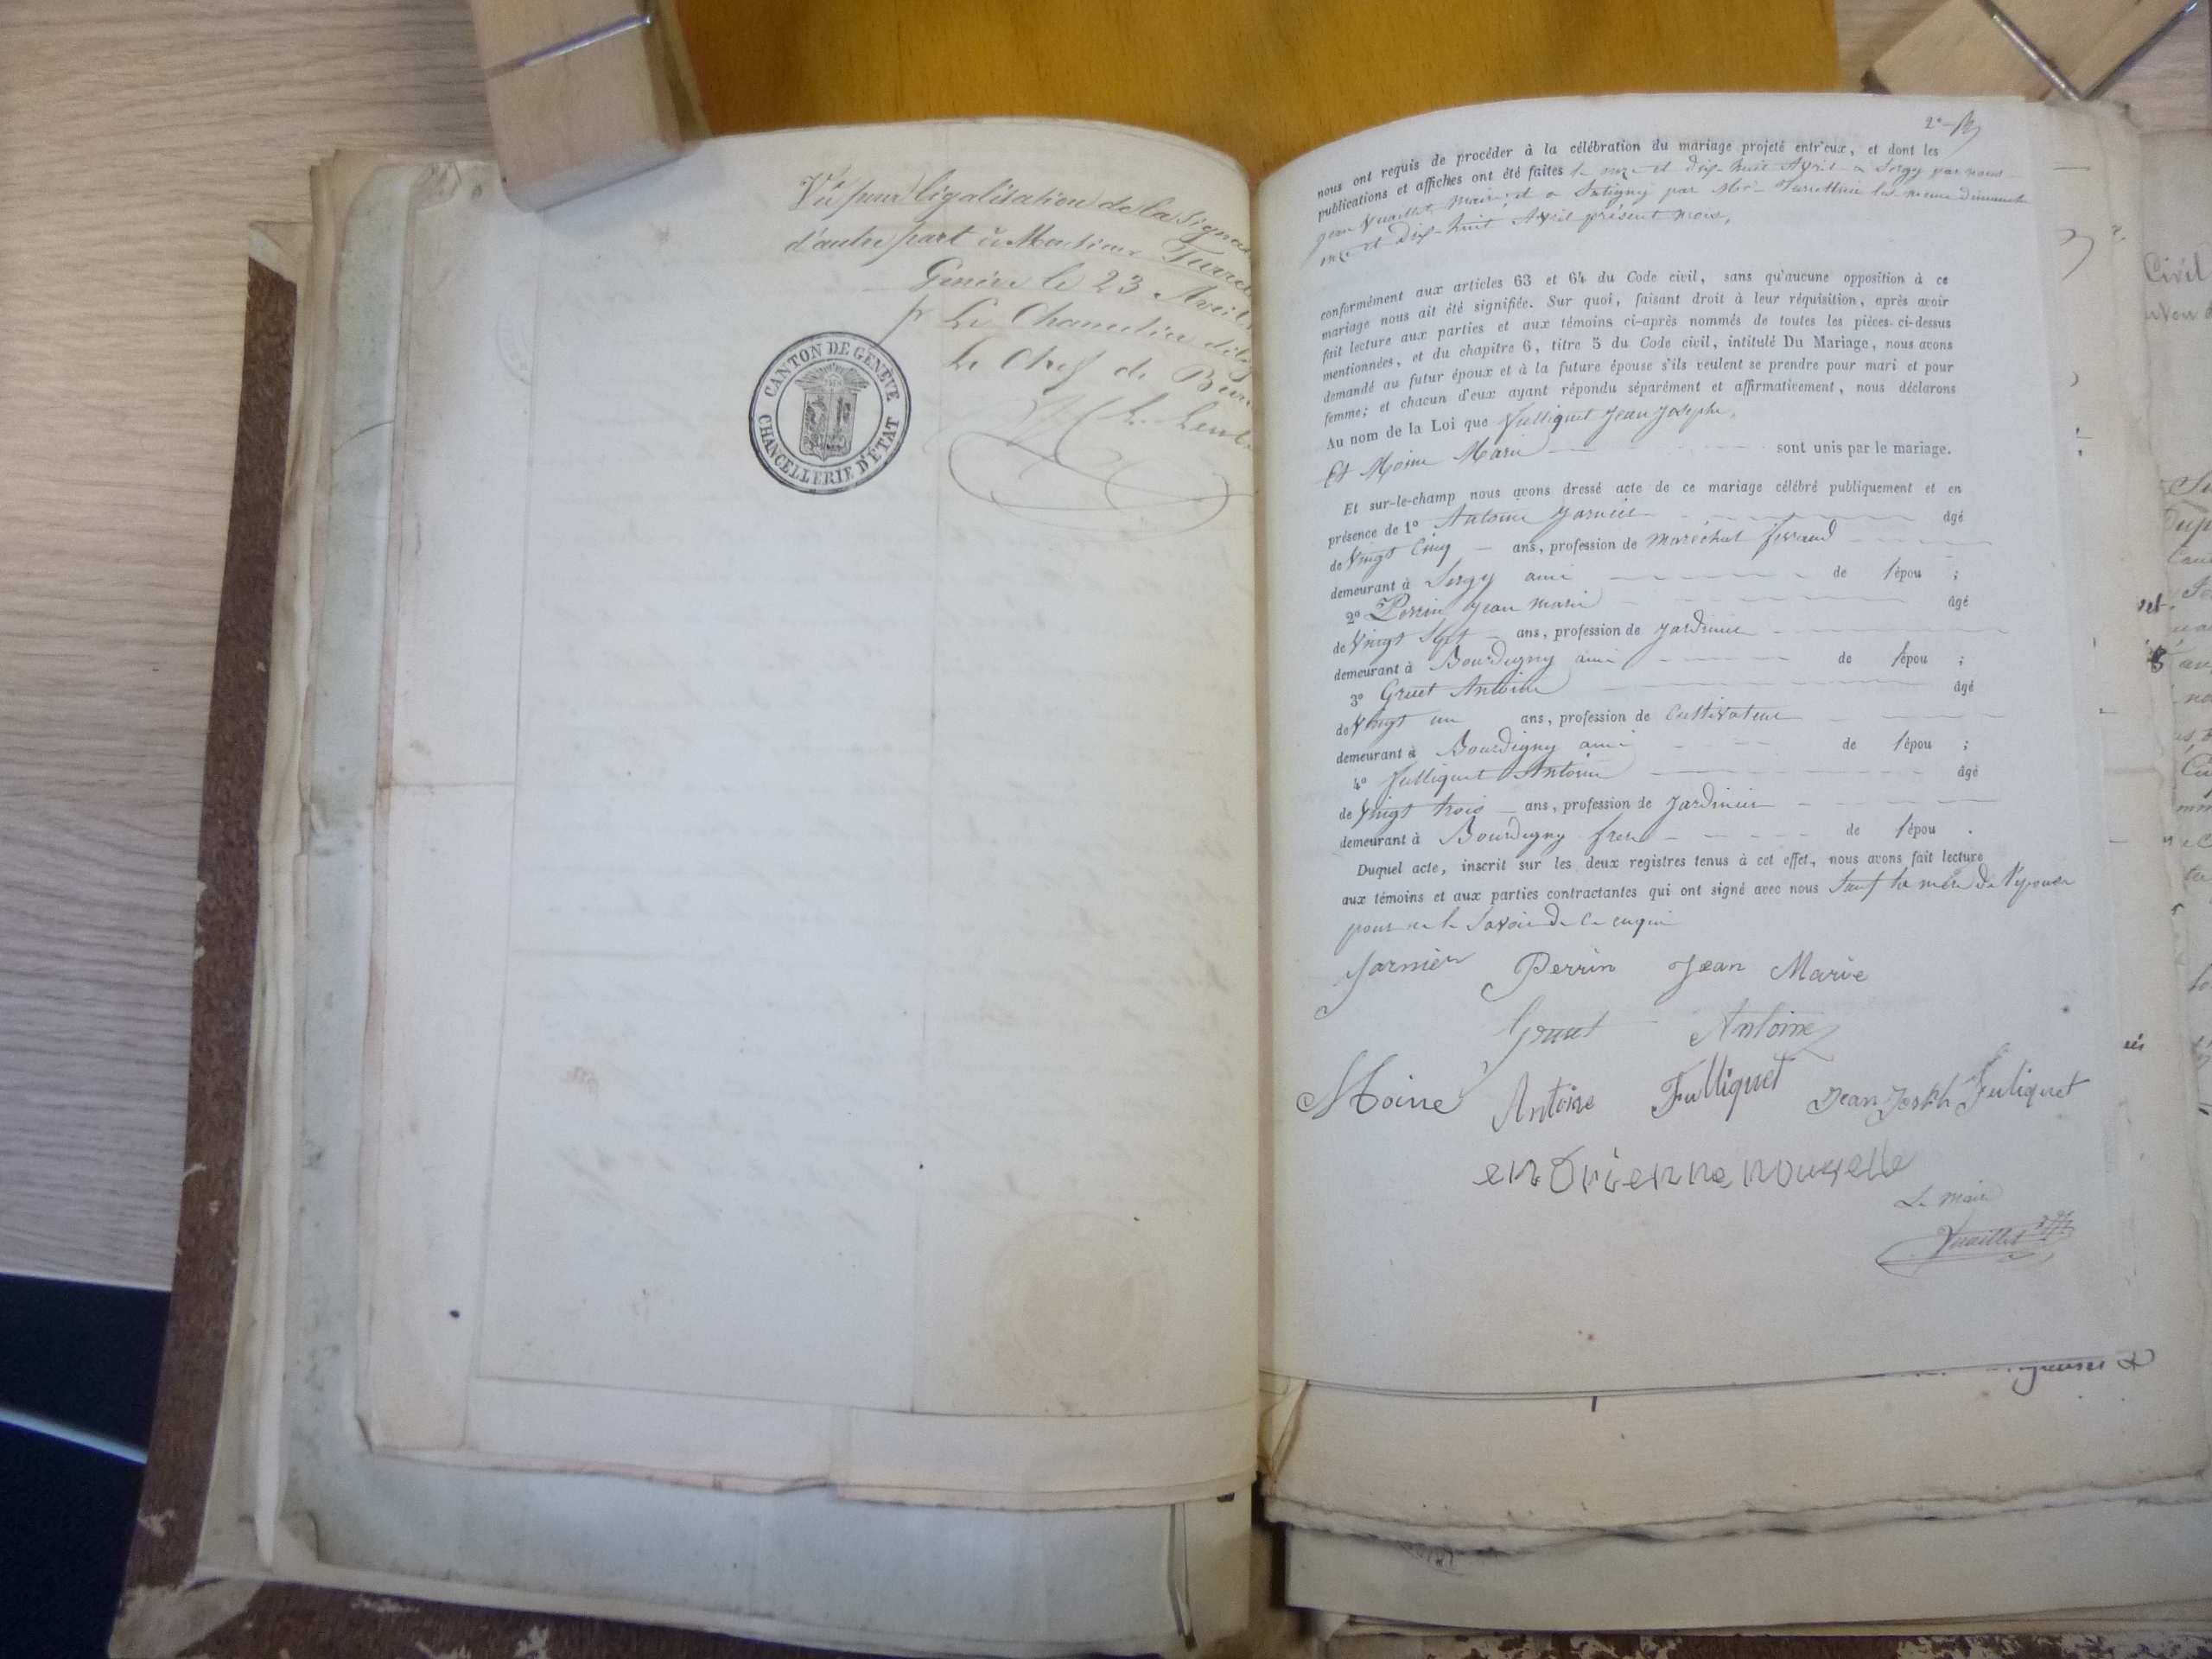 Vu pour légalisation de la signat
d'autre part de Monsieur Turret
Genève le 23 Avril
pr Le Chancelier
Le Chef de Bure
CANTON DE GENEVE
CHANCELLERIE D'ÉTAT
2e
nous ont requis de procéder à la célébration du mariage projeté entr'eux, et dont les
publications et affiches ont été faites le onze et dix-huit Avril a Sergy par nous
Jean Vuaillet Maire, et a Satigny par Mr Turettini les meme dimanche
onze et Dix-huit Avril présent mois,
conformément aux articles 63 et 64 du Code civil, sans qu'aucune opposition à ce
mariage nous ait été signifiée. Sur quoi, faisant droit à leur réquisition, après avoir
fait lecture aux parties et aux témoins ci-après nommés de toutes les pièces ci-dessus
mentionnées, et du chapitre 6, titre 5 du Code civil, intitulé Du Mariage, nous avons
demandé au futur époux et à la future épouse s'ils veulent se prendre pour mari et pour
femme; et chacun d'eux ayant répondu séparément et affirmativement, nous déclarons
Au nom de la Loi que Fulliquet Jean Joseph,
Et Moine Marie sont unis par le mariage.
Et sur-le-champ nous avons dressé acte de ce mariage célébré publiquement et en
présence de 1° Antoine Jarnier âgé
de Vingt Cinq ans, profession de Maréchal ferrand
demeurant à Sergy ami de l'épou ;
2° Perrin Jean Marie âgé
de Vingt Sept ans, profession de Jardinier
demeurant à Bourdigny ami de l'épou ;
3° Gruet Antoine âgé
de Vingt un ans, profession de Cultivateur
demeurant à Bourdigny ami de l'épou ;
4° Fulliquet Antoine âgé
de Vingt trois ans, profession de Jardinier
demeurant à Bourdigny frere de l'épou .
Duquel acte, inscrit sur les deux registres tenus à cet effet, nous avons fait lecture
aux témoins et aux parties contractantes qui ont signé avec nous Sauf la mère de l'épouse
pour ne le Savoir de ce enquis
Jarnier Perrin Jean Marie
Gruet Antoine
Moine Antoine Fulliquet Jean Joseph Fuliquet
Le Maire
Vuaillet